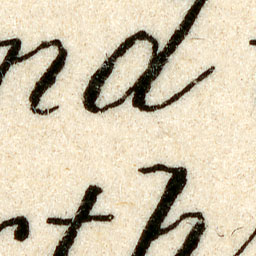 nd
rth